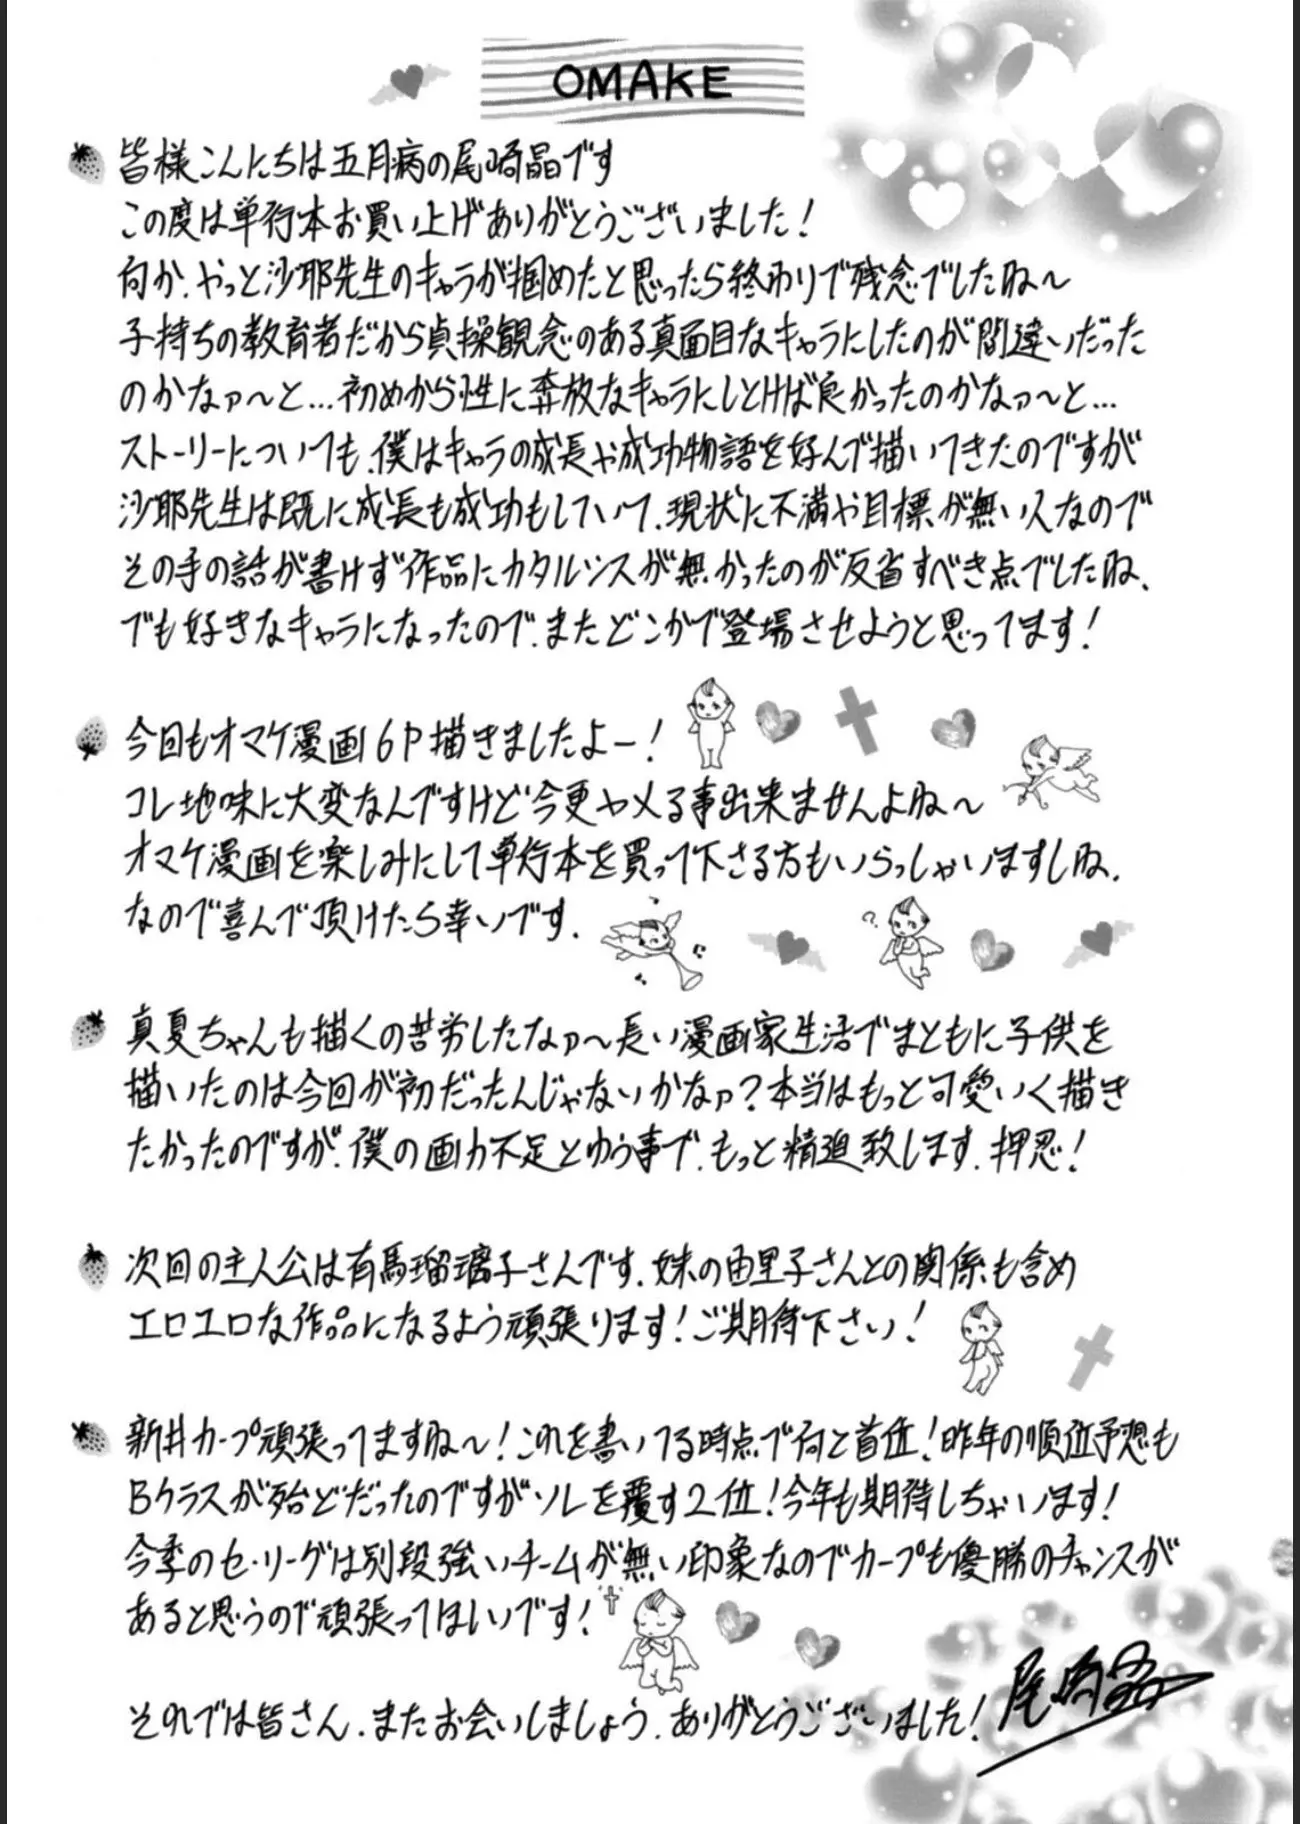 OMAKE
皆様こんにちは五月病の尾崎晶です
この度は単行本お買い上げありがとうございました!
何か、やっと沙耶先生のキャラが掴めたと思ったら終わりで残念でしたね〜
子持ちの教育者だから貞操観念のある真面目なキャラにしたのが間違いだった
のかなァ〜と…初めから性に奔放なキャラにしとけば良かったのかなァ〜と…
ストーリーについても、僕はキャラの成長や成功物語を好んで描いてきたのですが
沙耶先生は既に成長も成功もしていて、現状に不満や目標が無い人なので
その手の話が書けず作品にカタルシスが無かったのが反省すべき点でしたね、
でも好きなキャラになったので、またどこかで登場させようと思ってます!
今回もオマケ漫画6P描きましたよー!
コレ地味に大変なんですけど今更ヤメる事出来ませんよね〜
オマケ漫画を楽しみにして単行本を買って下さる方もいらっしゃいますしね、
なので喜んで頂けたら幸いです、
?
真夏ちゃんも描くの苦労したなァ〜長い漫画家生活でまともに子供を
描いたのは今回が初だったんじゃないかなァ?本当はもっと可愛いく描き
たかったのですが、僕の画力不足とゆう事で、もっと精進致します、押忍!
次回の主人公は有馬瑠璃子さんです、妹の由里子さんとの関係も含め
エロエロな作品になるよう頑張ります!ご期待下さい!
新井カープ頑張ってますね〜!これを書いてる時点で何と首位!昨年の順位予想も
Bクラスが殆どだったのですがソレを覆す2位!今年も期待しちゃいます!
今季のセ・リーグは別段強いチームが無い印象なのでカープも優勝のチャンスが
あると思うので頑張ってほしいです!
それでは皆さん、またお会いしましょう、ありがとうございました!
尾崎晶